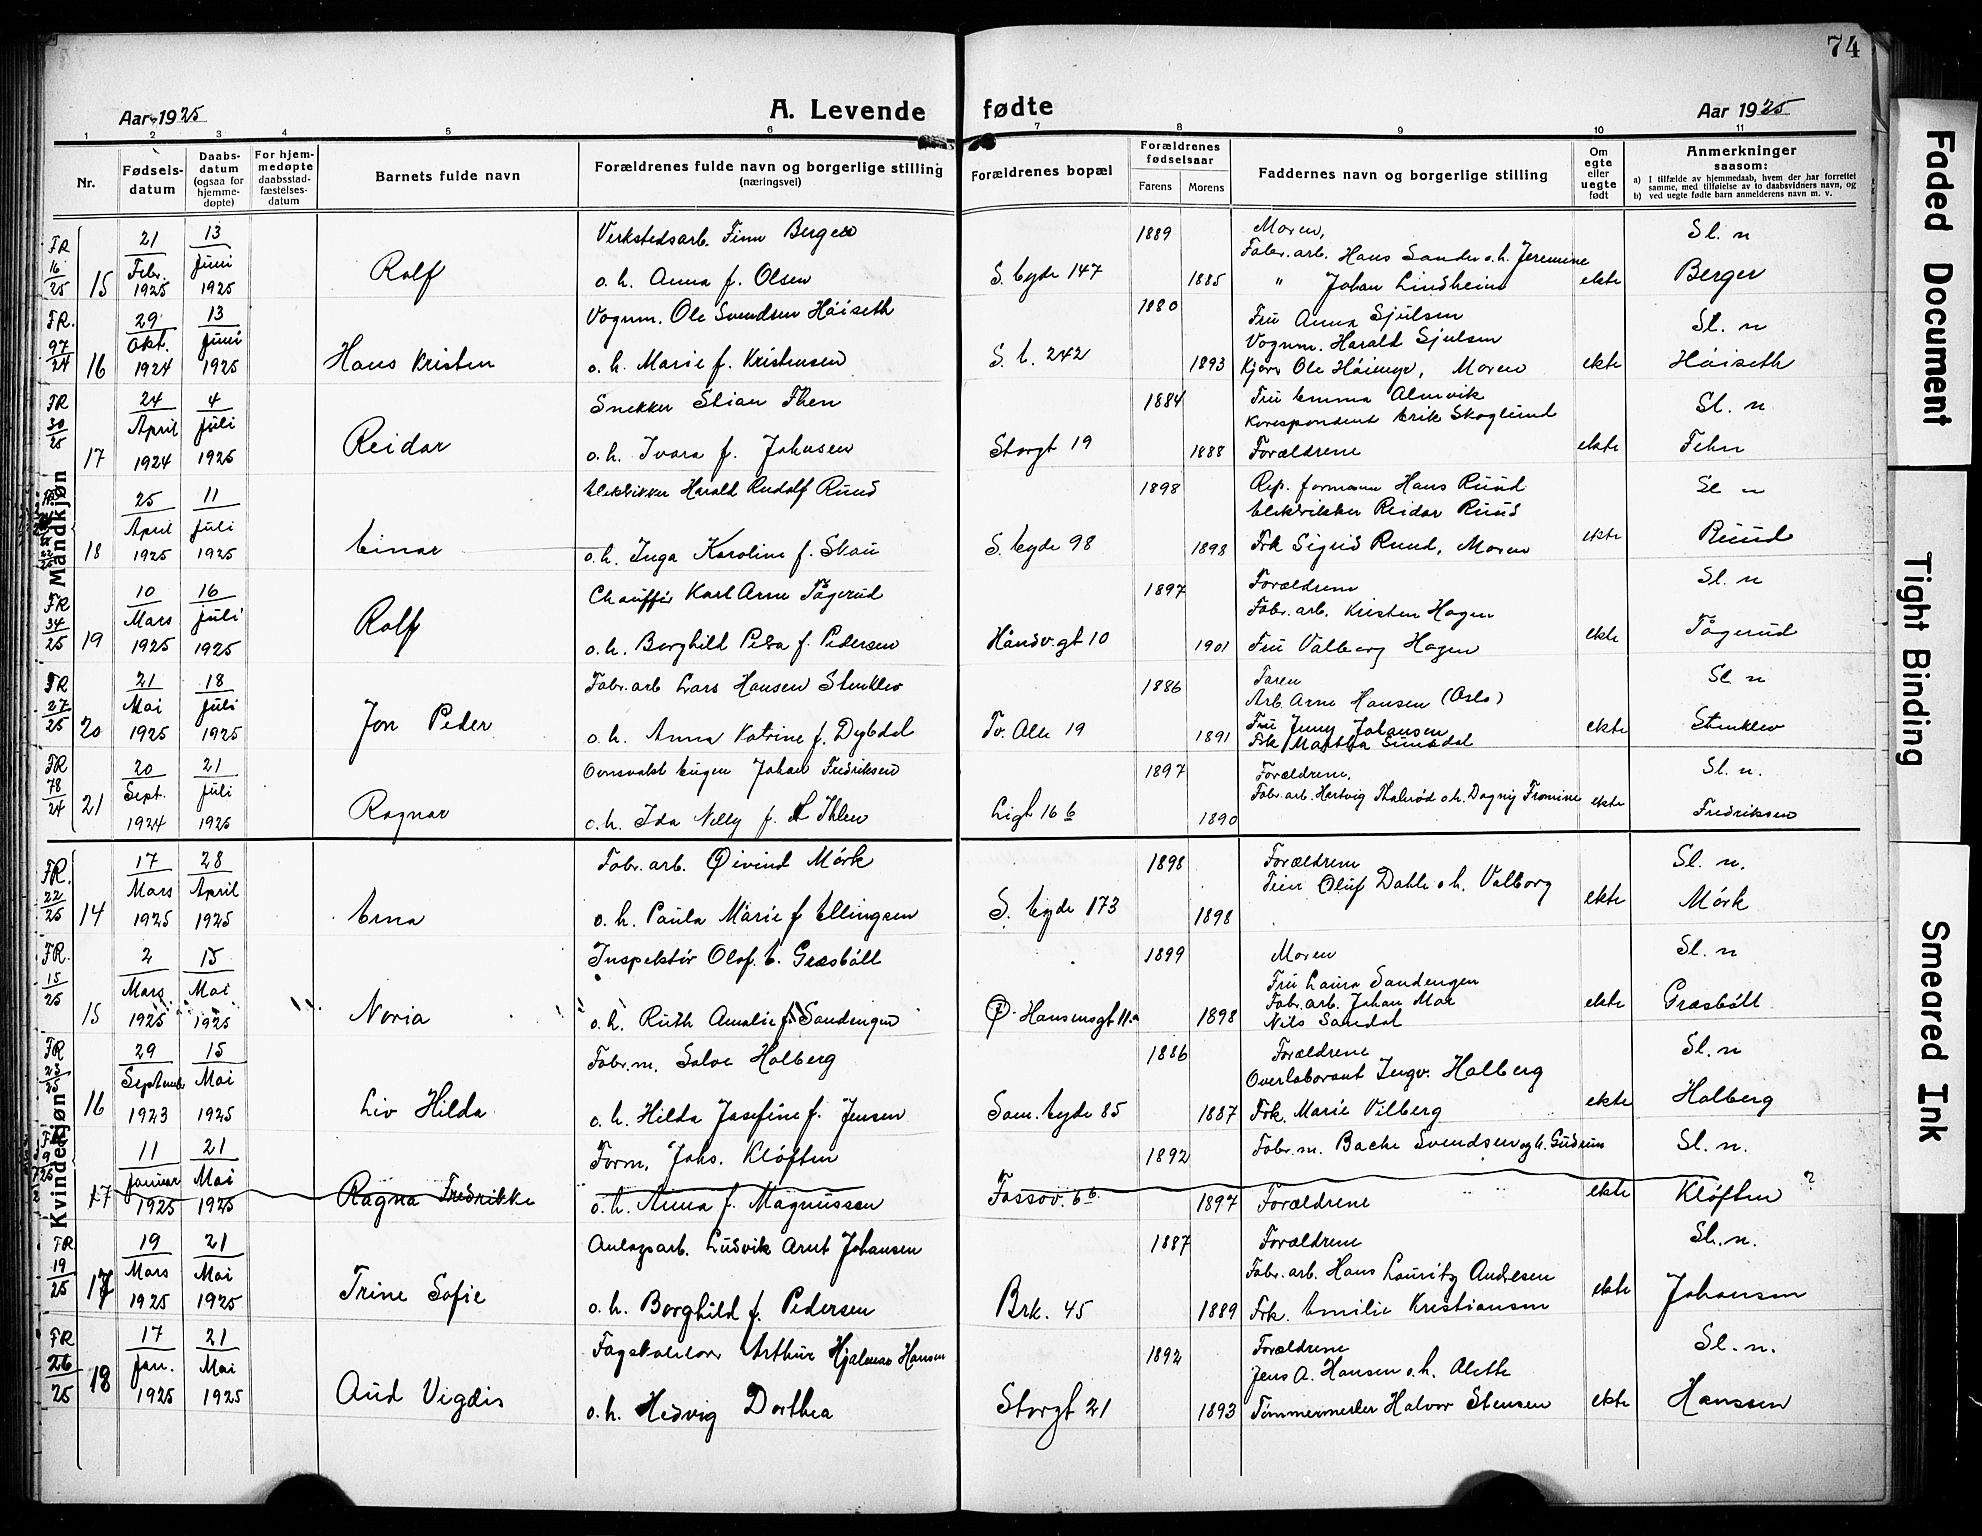 74
Aar 1925
A. Levende fødte
Aar 1925
1 2 3 4 5 6 7 8 9 10 11
Nr.
Fødsels-
datum
Daabs-
datum
(ogsaa for
hjemme-
døpte)
For hjem-
medøpte
daabsstad-
fæstelses-
datum
Barnets fulde navn
Forældrenes fulde navn og borgerlige stilling
(næringsvei)
Forældrenes bopæl
Forældrenes
fødselsaar
Farens
Morens
Faddernes navn og borgerlige stilling
Om
egte
eller
uegte
født
Anmerkninger
saasom:
a) I tilfælde av hjemmedaab, hvem der har forrettet
samme, med tilføielse av to daabsvidners navn, og
b) ved uegte fødte barn anmelderens navn m. v.
Mandkjøn
FR 16/25 15 21 Febr. 1925 13 Juni 1925 Rolf
Verkstedsarb. Finn Berger
o.h. Anna f. Olsen
S. Eyde 147 1889 1885
Moren,
Fabr. arb. Hans Sander o.h. Jeremine
" Johan Lindheim
ekte
Sl. n
Berger
FR. 97/24 16 29 Okt. 1924 13 Juni 1925 Hans Kristen
Vognm. Ole Svendsen Høiseth
o.h. Marie f. Kristensen
S. E. 242 1880 1893
Fru Anna Sjulsen
Vognm. Harald Sjulsen
Kjøre Ole Høienge, Moren
ekte
Sl. n
Høiseth
FR 30/25 17 24 April 1924 4 Juli 1925 Reidar
Snekker Stian Fhen
o.h. Ivara f. Johnsen
Storgt 19 1884 1888
Fru Emma Almvik
Korespondent Erik Skoglund
Forældrene
ekte
Sl. n
Fehn
18 25 April 1925 11 Juli 1925 Einar
Elektrikker Harald Rudolf Ruud
o.h. Inga Karoline f. Skau
S. Eyde 98 1898 1898
Rep. formann Hans Ruud
Elektrikker Reidar Ruud
Frk Sigrid Ruud, Moren
ekte
Sl n
Ruud
FR 34/25 19 10 Mars 1925 16 Juli 1925 Rolf
Chauffør Karl Arne Tågerud
o.h. Borghild Petra f. Pedersen
Håndv. gt 10 1897 1901
Forældrene
Fabr. arb. Kristen Hagen
Fru Valborg Hagen
ekte
Sl. n
Tågerud
FR 27/25 20 21 Mai 1925 18 Juli 1925 Jon Peder
Fabr. arb Lars Hansen Stenklev
o.h. Anna Katrine f. Dybdal
Tv. Alle 19 1886 1891
Faren
Arb. Arne Hansen (Oslo)
Fru Jenny Johansen
Frk Martha Sundsdal
ekte
Sl. n
Stenklev
FR 78/24 21 20 Sept. 1924 21 Juli 1925 Ragnar
Ovnsvakt Eugen Johan Fredriksen
o.h. Ida Nelly f. Ihlen
Ligt 16 b 1897 1890
Forældrene,
Fabr. arb. Hertvig Thalerød o.h. Dagny Fromine
ekte
Sl. n.
Fredriksen
Kvindekjøn
FR. 22/25 14 17 Mars 1925 28 April 1925 Erna
Fabr. arb. Øivind Mørk
o.h. Paula Marie f Ellingsen
S. Eyde 173 1898 1898
Forældrene
Feier Oluf Dahle o.h. Valborg
ekte
Sl. n.
Mørk
FR. 15/25 15 2 Mars 1925 15 Mai 1925 Noria
Inspektør Olof. E. Græsbøll
o.h. Ruth Amalie f. Sandengen
Ø. Hansensgt 11.a 1899 1898
Moren
Fru Laura Sandengen
Fabr. arb. Johan Moe
Nils Sandal
ekte
Sl. n
Græsbøll
FR 23/25 16 29 Septembr 1923 15 Mai 1925 Liv Hilda
Fabr. m. Salve Holberg
o.h. Hilda Josefine f. Jensen
Sam. Eyde 85 1886 1887
Forældrene
Overlaborant Ingv. Holberg
Frk. Marie Vilberg
ekte
Sl. n
Holberg
17 11 Januar 1925 21 Mai 1925 Ragna Fredrikke
Form. Johs. Kløften
o.h. Anna f. Magnussen
Fossov. 6 b. 1892 1897
Fabr. m. Bache Svendsen og h. Gudrun
Forældrene
ekte
Sl. n.
Kløften ?
FR 19/25 17 19 Mars 1925 21 Mai 1925 Trine Sofie
Anlagsarb. Ludvik Arnt Johansen
o.h. Borghild f. Pedersen
Brk. 45 1887 1889
Forældrene
Fabr. arb. Hans Lauritz Andresen
Frk. Emilie Kristiansen
ekte
Sl. n.
Johansen
FR 26/25 18 17 Jan. 1925 21 Mai 1925 Aud Vigdis
Arthur Hjalmar Hansen
o.h. Hedvig Dorthea
Storgt 21 1892 1893
Forældrene
Jens A. Hansen o.h. Alette
Tømmermester Halvor Stensen
ekte
Sl. n.
Hanssen
Faded Document
Tight Binding
Smeared Ink